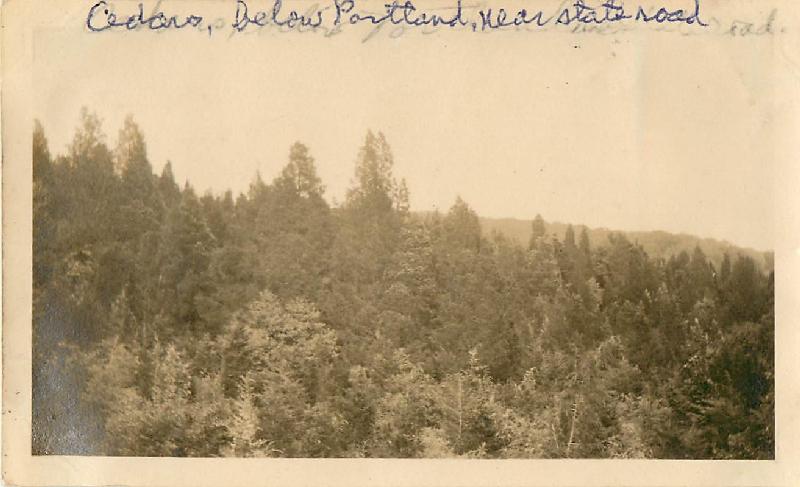 Cedars, Below Portland, near state road